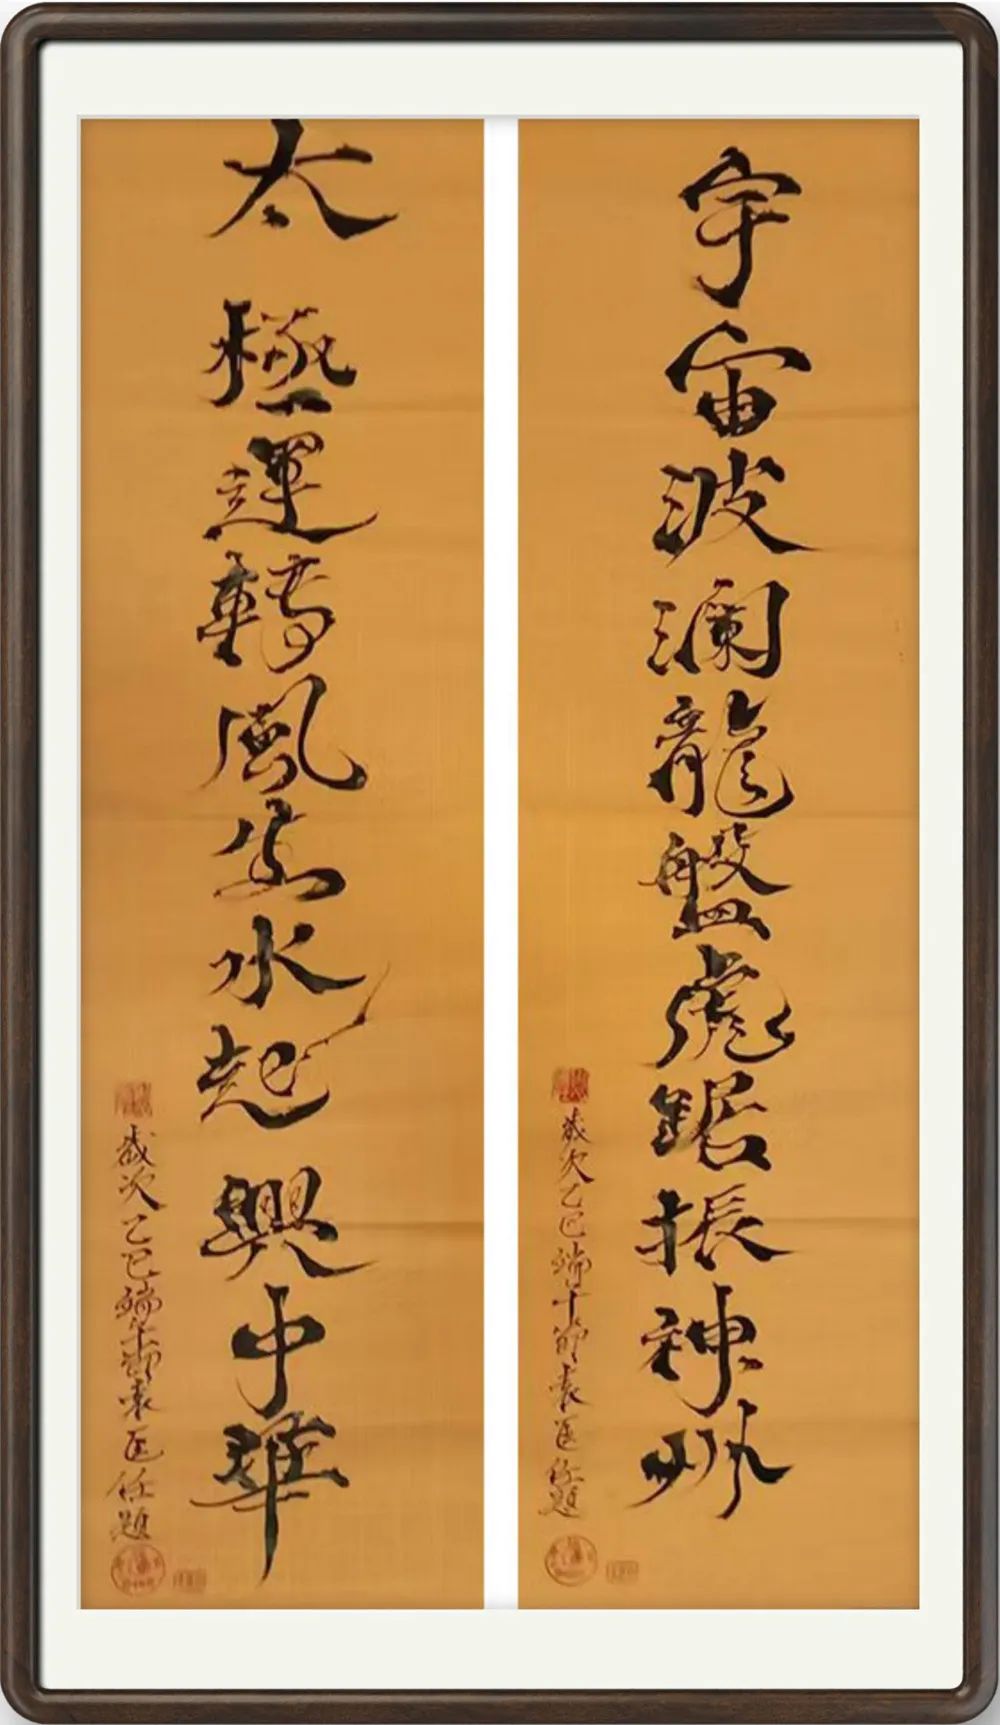 宇宙波澜龍盤虎鋸振神州
歲次乙巳端午節袁匡任題
太極運轉風生水起興中華
歲次乙巳端午節袁匡任題